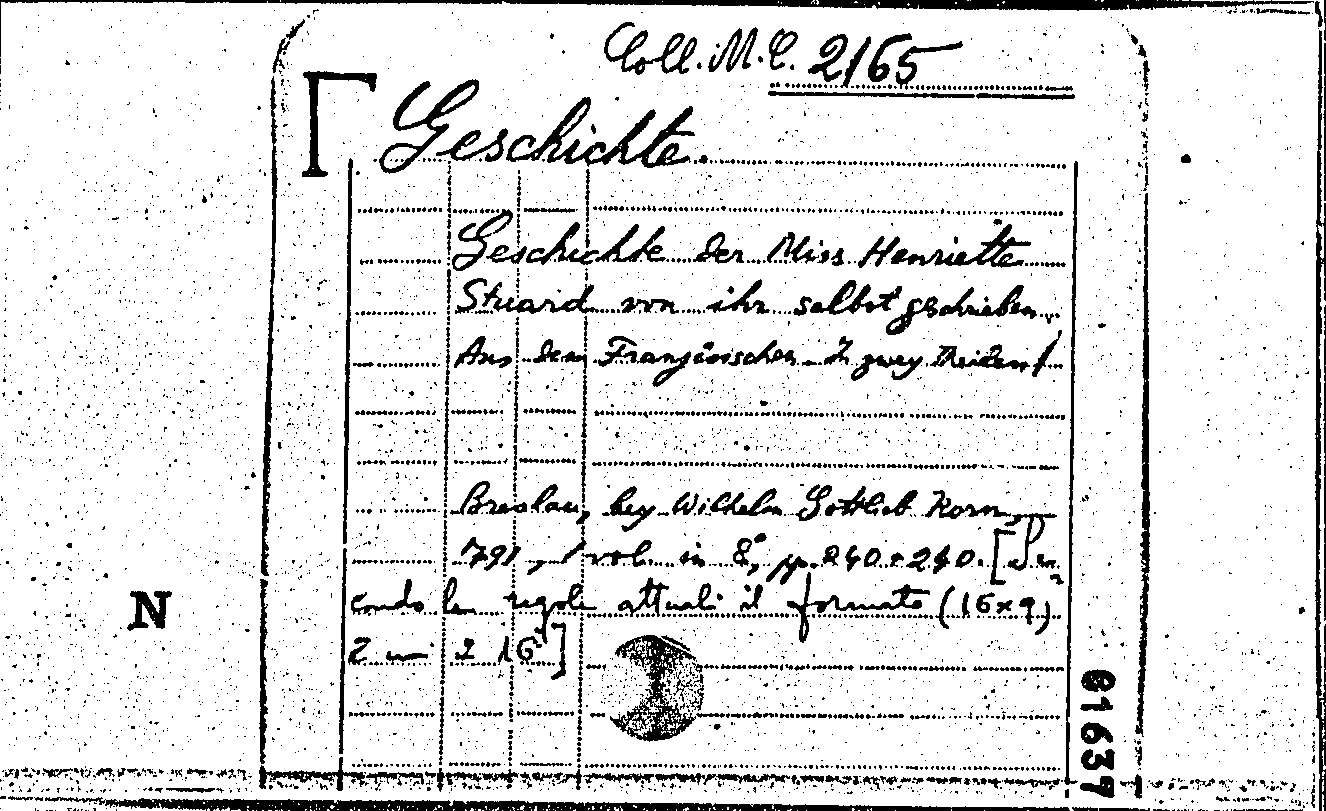 Coll. M. C. 2165
Geschichte.
Geschichte der Miss Henriette
Stuard von ihr selbst geschrieben.
Aus dem Französischen. In zwey Theilen/
Breslau, bey Wilhelm Gottlieb Korn,
791, 1 vol. in 8°, pp. 240+240. [Se
condo le regole attuali il formato (16x9)
2 in 16°]
N
01637